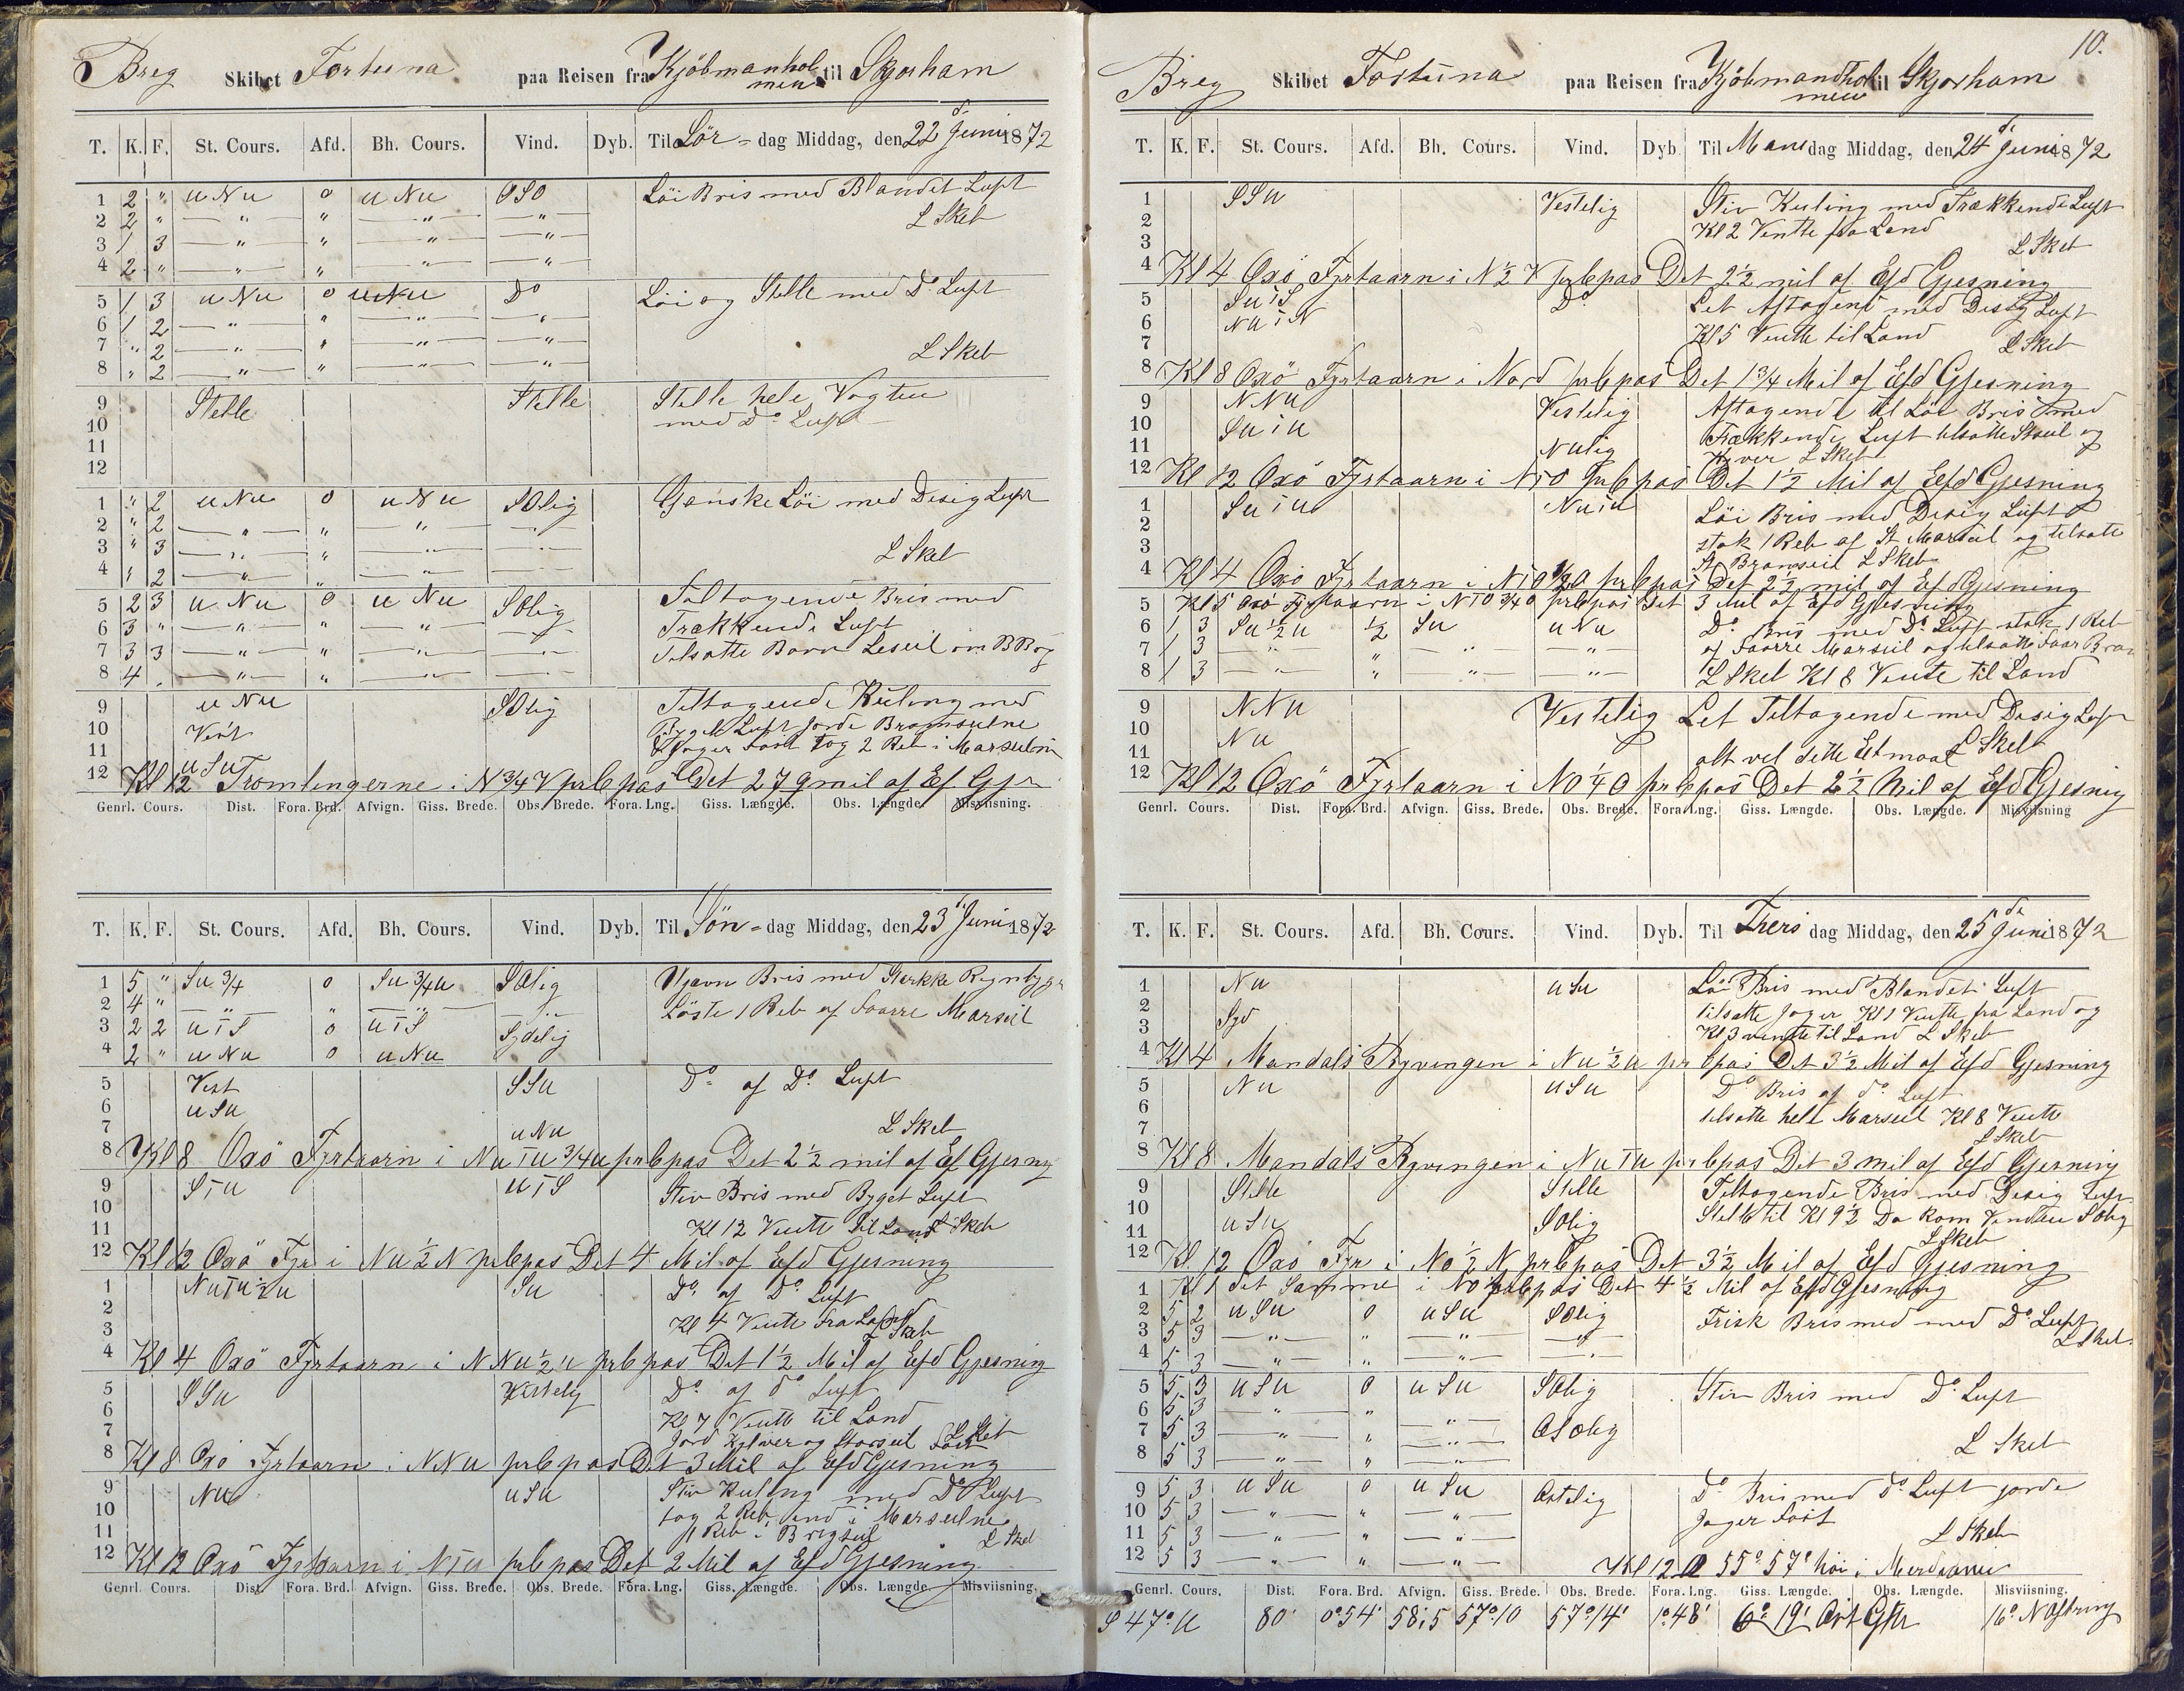 Breg Skibet Fortuna paa Reisen fra Kjöbmanhol til Skjorham
men
T. K. F. St. Cours. Afd. Bh. Cours. Vind. Dyb. Til Lör - dag Middag, den 22 d. Juni 1872
1 2 " u Nu o u Nu OSO Löi Bris med Blandet Luft
2 2 " — " — " — " — — " — L Skeb
3 1 3 — " — " — " — — " —
4 2 " — " — " — " — — " —
5 1 3 u Nu o u Nu Do Löi og Stelle med Do. Luft
6 1 2 — " — " — " — — " —
7 " 2 — " — " — " — — " —
8 " 2 — " — " — " — — " — L Skeb
9 Stelle Stelle Stelle hele Vagten
10 med Do. Luft
11
12
1 " 2 u Nu o u Nu SOlig Ganske Löi med Disig Luft
2 " 2 — " — " — " — — " —
3 " 3 — " — " — " — — " — L Skeb
4 1 2 — " — " — " — — " —
5 2 3 u Nu o u Nu SOlig Tiltagende Bris med
6 3 " — " — " — " — — " — Trækkende Luft
7 3 3 — " — " — " — — " — Tilsatte Bovn Leseil om BBog
8 4 . — " — " — " — — " —
9 u Nu SOlig Tiltagende Kuling med
10 Vest Byget Luft Jorde Bramseilne
11 u Su & Jager Fast Tog 2 Reb i Marseilne
12 Kl 12 Tromlingerne i N 3/4 V pr Cpas Det 2 7 qmil af Ef Gjs
Genrl. Cours. Dist. Fora. Brd. Afvign. Giss. Brede. Obs. Brede. Fora. Lng. Giss. Længde. Obs. Længde. Misviisning.
T. K. F. St. Cours. Afd. Bh. Cours. Vind. Dyb. Til Sön - dag Middag, den 23 d. Juni 1872
1 5 " Su 3/4 o Su 3/4 u SOlig Ujævn Bris med Stærkke Regnbyger
2 4 " — " — " — " — — " — Löste 1 Reb af Foorre Marseil
3 2 2 u T S o u T S Sydelig
4 2 " u Nu o u Nu
5 Vest SSu Do af Do Luft
6 u Su
7 u Nu L Skeb
8 Kl 8 Oxö Fyrtaarn i Nu T u 3/4 u pr Cpas Det 2 1/2 mil af Ef Gjesning
9 S T u u T S Stiv Bris med Byget Luft
10
11 Kl 12 Vente til Land L Skeb
12 Kl 12 Oxö Fyr i Nu 1/2 N pr Cpas Det 4 Mil af Efd Gjesning
1 Nu T u 1/2 u Su Do af Do Luft
2
3 Kl 4 Vente fra Land L Skeb
4 Kl 4 Oxö Fyrtaarn i N Nu 1/2 u pr Cpas Det 1 1/2 Mil af Efd Gjesning
5 SSu Vestelig Do af do Luft
6 Kl 7 Vente til Land
7 Jord Kyliver og Storseil Fast L Skeb
8 Kl 8 Oxö Fyrtaarn i N Nu pr Cpas Det 3 Mil af Efd Gjesning
9 Nu u Su Stiv Kuling med Do Luft
10 tog 2 Reb ind i Marseilne
11 1 Reb i Brigseil L Skeb
12 Kl 12 Oxö Fyrtaarn i N T u pr Cpas Det 2 Mil af Efd Gjesning
Genrl. Cours. Dist. Fora. Brd. Afvign. Giss. Brede. Obs. Brede. Fora. Lng. Giss. Længde. Obs. Længde. Misviisning.
10.
Breg Skibet Fortuna paa Reisen fra Kjöbmandhol til Skjorham
men
T. K. F. St. Cours. Afd. Bh. Cours. Vind. Dyb. Til Man dag Middag, den 24 d. Juni 1872
1 SSu Vestelig Stiv Kuling med Trækkende Luft
2 Kl 2 Vente fra Land
3 L Skeb
4 Kl 4 Oxö Fyrtaarn i N 1/2 V pr Cpas Det 2 1/2 mil af Efd Gjesning
5 Su i S Do Let Aftagend med Desig Luft
6 Nu i N
7 Kl 5 Vente til Land L Skeb
8 Kl 8 Oxö Fyrtaarn i Nord pr Cpas Det 1 3/4 Mil af Efd Gjesning
9 N Nu Vestelig Aftagende til Löi Bris med
10 Su i u Trækkende Luft tilsatte Stseil og
11 Nulig Kyver L Skeb
12 Kl 12 Oxö Fyrtaarn i N T O pr Cpas Det 1 1/2 Mil af Efd Gjesning
1 Su i u Nu i u Löi Bris med Desig Luft
2
3 stak 1 Reb af St Marseil og tilsatte
4 St Bramseil L Skeb
Kl 4 Oxö Fyrtaarn i N T O 1/2 O pr Cpas Det 2 1/2 mil af Efd Gjesning
5 Kl 5 Oxö Fyrtaarn i N T O 3/4 O pr Cpas Det 3 Mil af Efd Gjesning
6 1 3 Su 1/2 u 1/2 Su u Nu Do Bris med Do Luft stak 1 Reb
7 1 3 — " — " — " — — " — af Foorre Marseil og tilsatte Foor Bram
8 1 3 — " — " — " — — " — L Skeb Kl 8 Vente til Land
9 N Nu Vestelig Let Teltagende med Desig Luft
10 Nu
11 alt vel dette Etmaal L Skeb
12 Kl 12 Oxö Fyrtaarn i NO 1/4 O pr Cpas Det 2 1/2 Mil af Efd Gjesnig
Genrl. Cours. Dist. Fora. Brd. Afvign. Giss. Brede. Obs. Brede. Fora. Lng. Giss. Længde. Obs. Længde. Misviisning
T. K. F. St. Cours. Afd. Bh. Cours. Vind. Dyb. Til Thers dag Middag, den 25 de Juni 1872
1 Nu u Su Löi Bris med Blandet Luft
2 tilsatte Jager Kl 1 Vente fra Land og
3 Syd Kl 3 vente til Land L Skeb
4 Kl 4 Mandals Ryvingen i Nu 1/2 u pr Cpas Det 3 1/2 Mil af Efd Gjesning
5 Nu u Su Do Bris af do Luft
6
7 tilsatte hele Marseil Kl 8 Vente
L Skeb
8 Kl 8 Mandals Ryvingen i Nu T u pr Cpas Det 3 mil af Efd Gjesning
9 Stille Stille Teltagende Bris med Desig Luft
10 Stelle til Kl 9 1/2 Da kom Vinden SOlig
11 u Su SOlig L Skeb
12 Kl 12 Oxö Fyr i No 1/2 N pr Cpas Det 3 1/2 Mil af Efd Gjesning
1 Kl 1 det Samme i NO pr Cpas Det 4 1/2 Mil af Efd Gjesning
2 5 2 u Su o u Su SOlig Frisk Bris med med Do Luft
3 5 3 — " — " — " — — " — L Skeb
4 5 3 — " — " — " — — " —
5 5 3 u Su o u Su SOlig Stiv Bris med Do Luft
6 5 3 — " — " — " —
7 5 3 — " — " — " — OSOlig
8 5 3 — " — " — " — L Skeb
9 5 3 u Su o u Su Ostelig Do Bris med do Luft jorde
10 5 3 — " — " — " — Jager Fast
11 5 3 — " — " — " — L Skeb
12 5 3 — " — " — " — Kl 12 55° 57' höi i Merdianen
Genrl. Cours. Dist. Fora. Brd. Afvign. Giss. Brede. Obs. Brede. Fora. Lng. Giss. Længde. Obs. Længde. Misviisning.
S 47° u 80' 0° 54' 58,5 57° 10 57° 14' 1° 48' 6° 19' Ost Gr 16° N